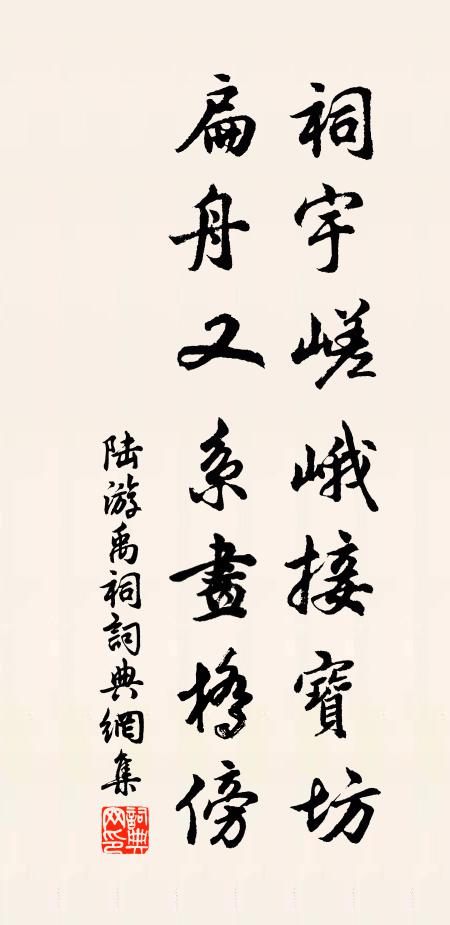 祠宇嵯峨接寶坊
扁舟又系畫橋傍
陆游禹祠詞典網集
詞典网印